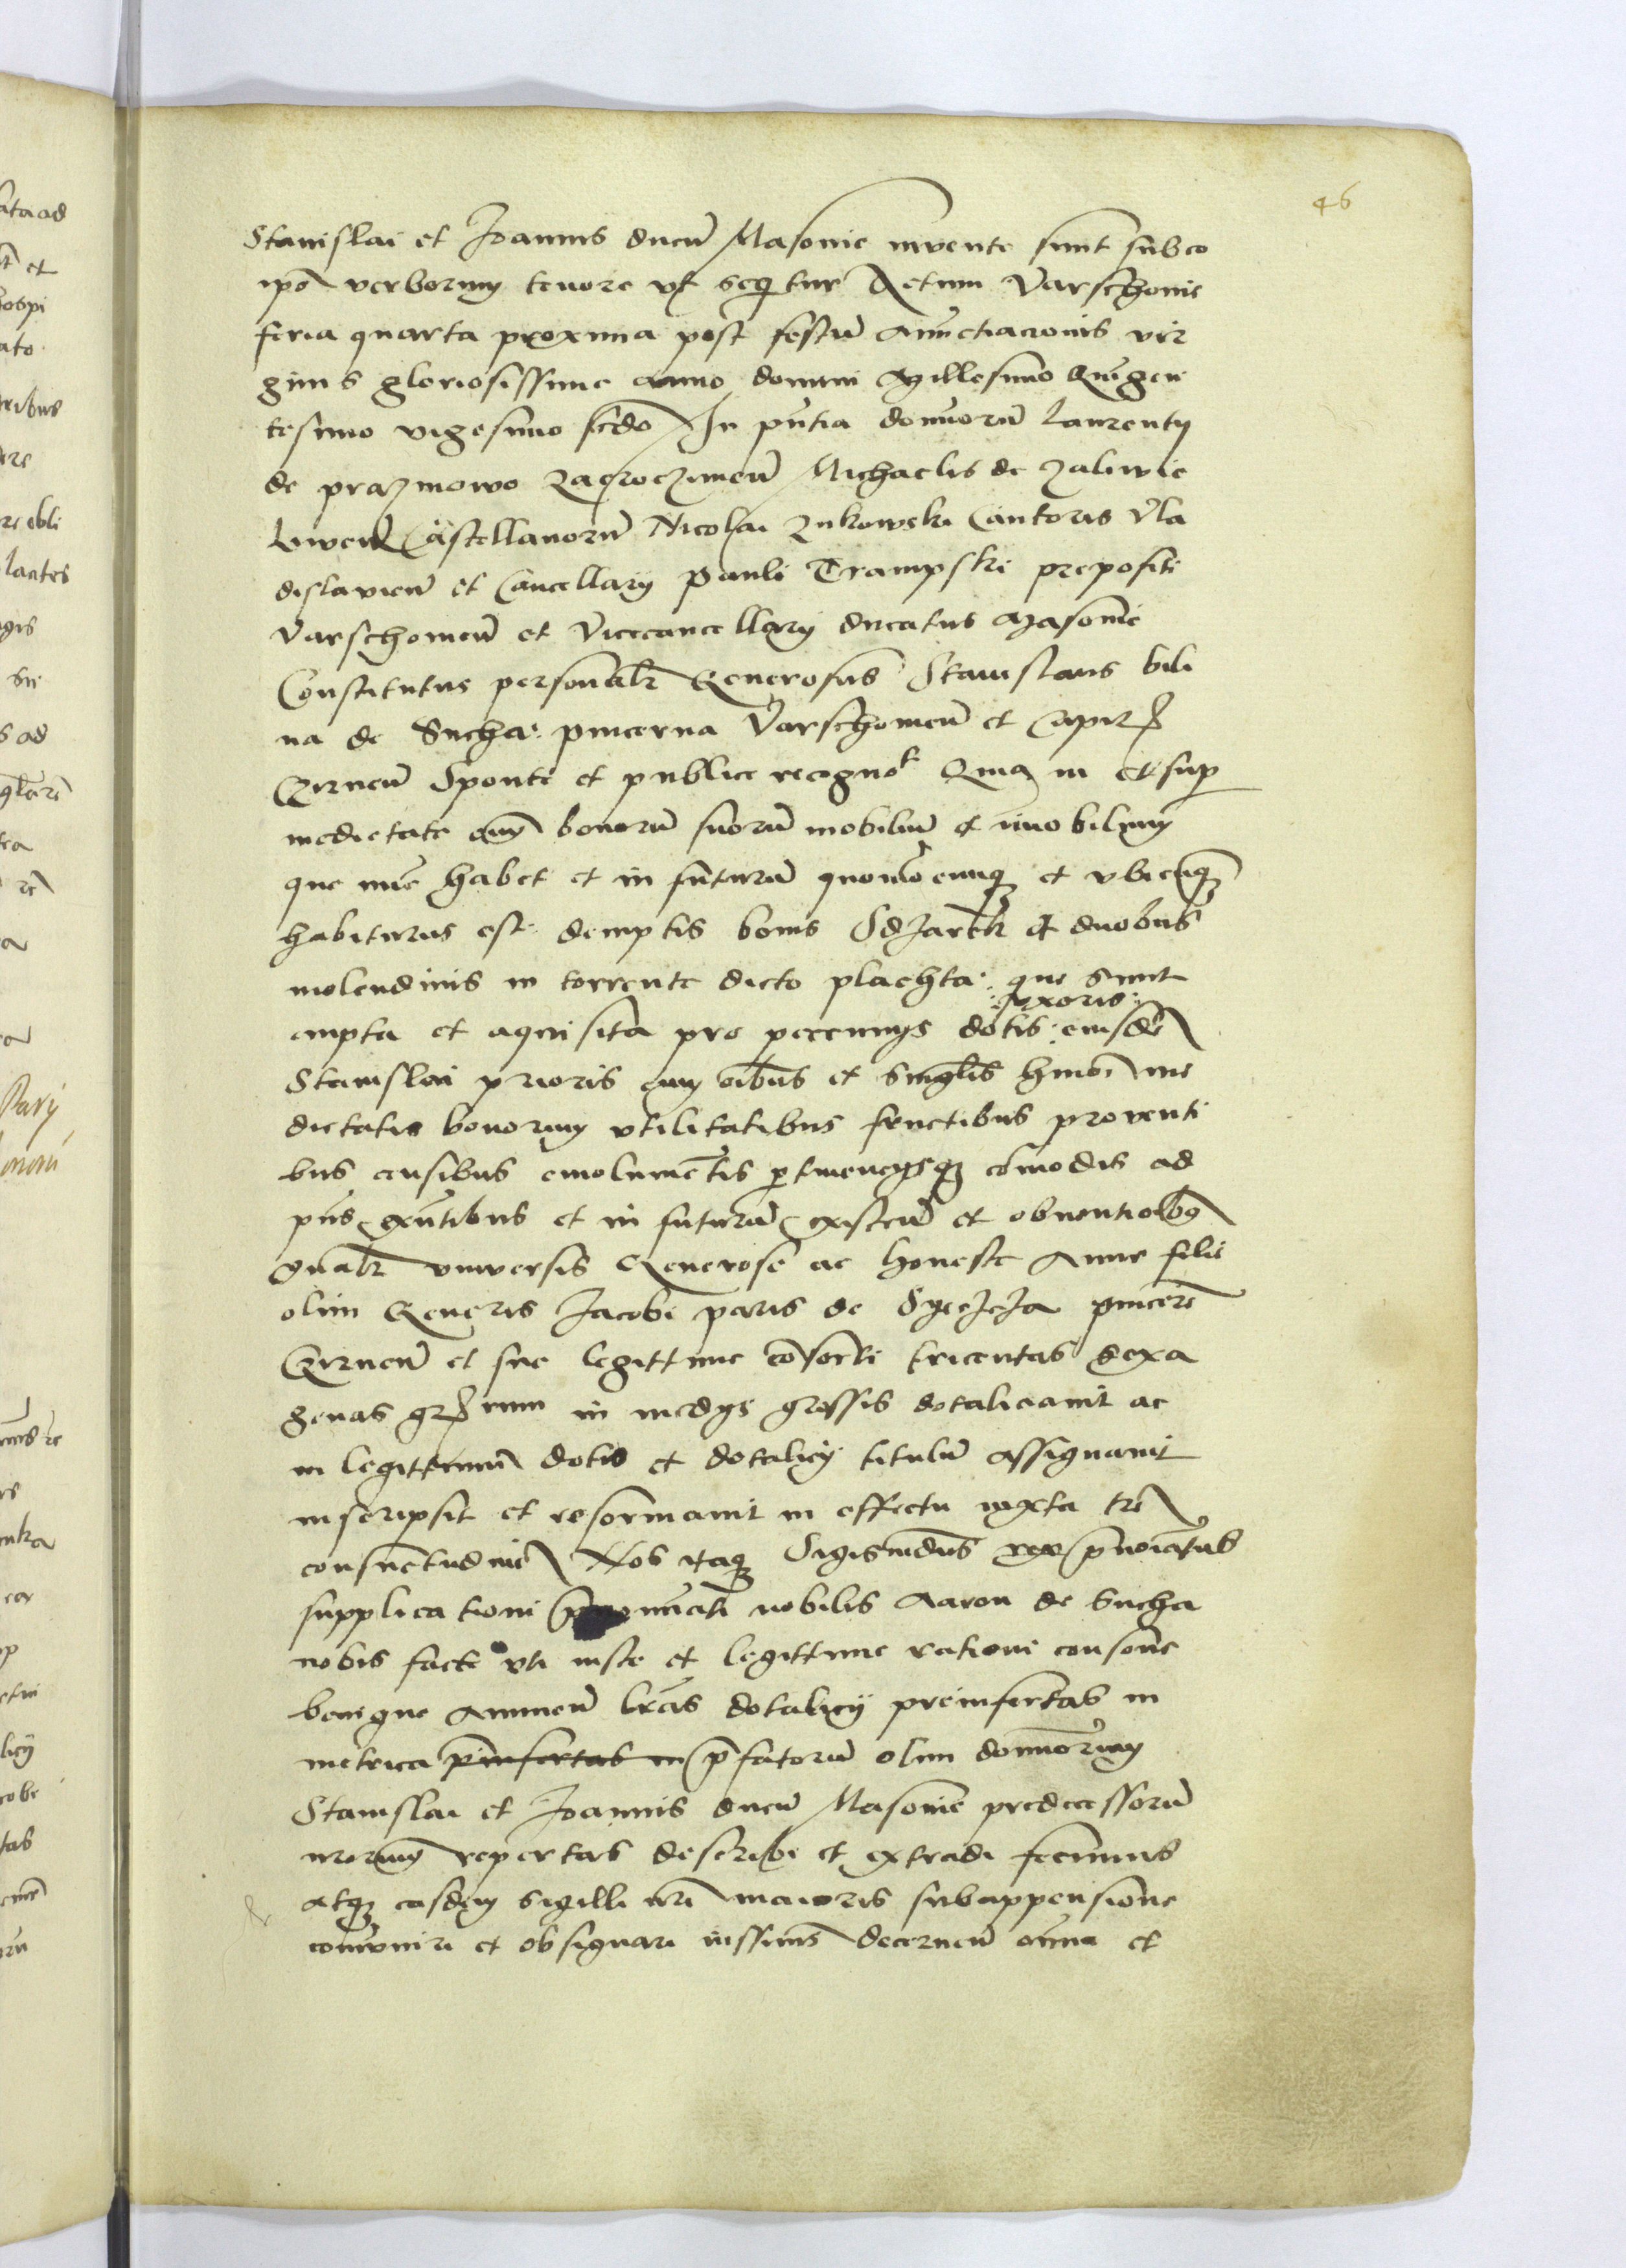 46
Stanislai et Joannis ducū Masouie invente sunt sub eo
ipō verborum tenore vt seqitur Actum Varschouie
feria quarta proxima post festū Anūctiacionis vir
ginis gloriosissime anno domini Millesimo Quīgen
tesimo vigesimo scdo In pñtia domnorū Laurentij
de prazmowo Zacroczimeñ Michaelis de zaliwie
Castellanorū Nicolai Zukowski Cantoris Vla
dislavieñ et Cancellarij Pauli Trampski prepositi
Varschouieñ et Vicecancellarij ducatus Masouie
Constitutus personalr Generosus Stanislaus bili
na de Sucha pincerna Varschouieñ et Capit
Czirneñ Sponte et publice recogno Quia in et sup
medietate oim bonorū suorū mobiliū et īmobilium
que nūc habet et in futurū quomōcunq et vbicūq
habiturus est demptis bonis et duobus
molendinis in torrente dicto plachta que sunt
empta et aquisita pro pecunijs dotis eiusdē
uxoris
Stanislai prioris cum oībus et singlis hmōi me
dietatis bonorum vtilitatibus fructibus proventi
bus censibus emolumētis ptinencijsq cōmodis ad
pñs exñtibus et in futurū existeñ et obventioībq
gñalr vniversis Generose ac honeste Anne filie
olim Generis Jacobi paris de pincerē
Czirneñ et sue legittime cōsorti tricentas sexa
genas grrum in medijs grossis dotaliciauit ac
in legittimū dotis et dotalicij titulū assignauit
inscripsit et reformauit in effectu iuxta trē
consuetudinē Nos itaq Sigismūdus rex pnoīatus
supplicationi nobilis Aaron de Sucha
nobis facte vti iuste et legittime rationi consone
benigne annueñ lrās dotalicij preinsertas in
metrica pinsertas in pfatorū olim domnorum
Stanislai et Joannis ducū Masouie predecessorū
nrorum repertas describi et extradi fecimus
Atq easdem sigilli nri maioris subappensione
cōmuniri et obsignari iussimus decerneñ omnia et